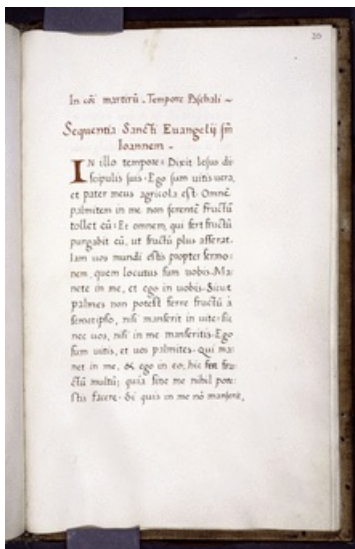 20
In cõi martirũ . Tempore Paschali ~
Sequentia Sancti Euangelij sm̃
Ioannem .
IN illo tempore: Dixit Iesus di-
scipulis suis. Ego sum uitis uera,
et pater meus agricola est. Omnẽ
palmitem in me non ferentẽ fructũ
tollet eũ: Et omnem, qui fert fructũ
purgabit eũ, ut fructũ plus afferat.
Iam uos mundi estis propter sermo-
nem, quem locutus sum uobis. Ma-
nete in me, et ego in uobis. Sicut
palmes non potest ferre fructũ à
semetipso, nisi manserit in uite: sic
nec uos, nisi in me manseritis. Ego
sum uitis, et uos palmites. Qui ma-
net in me, & ego in eo; hic fert fru-
ctũ multũ; quia sine me nihil pote-
stis facere. Si quis in me nõ manserit,